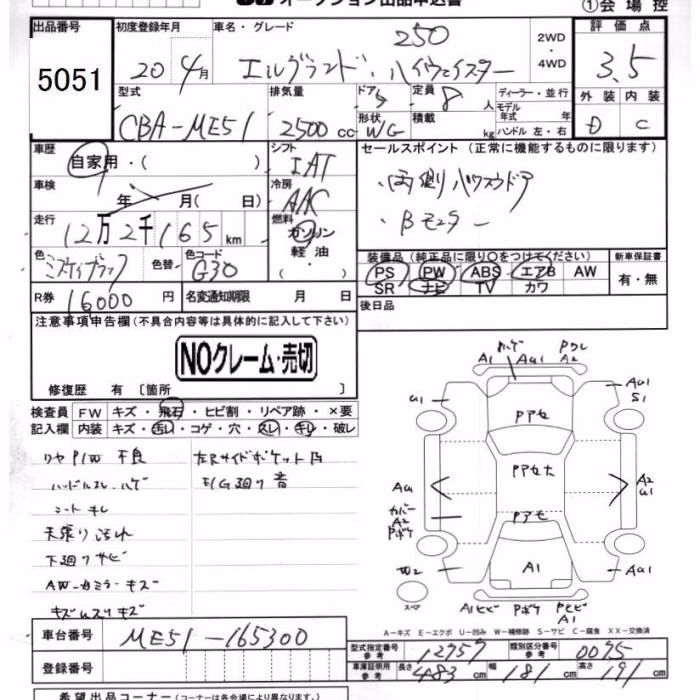 オークション出品申込書 ①会場控
出品番号 初度登録年月 車名・グレード 250 2WD・4WD 評価点
5051 20 4月 エルグランド・ハイウェイスター 3.5
型式 排気量 ドア 5 定員 8 人 ディーラー・並行 外装 内装
CBA-ME51 2500 cc 形状 WG 積載 kg モデル年式 年 ハンドル 左・右 D C
車歴 自家用・( ) シフト IAT セールスポイント (正常に機能するものに限ります)
車検 年 月( 日) 冷房 AAC ・両側パワスラドア
走行 12万2千165km 燃料 ガソリン 軽油 ・( ) ・Bモニター
色 ミスティブラック 色替 色コード G30
装備品 (純正品に限り○をつけてください) 新車保証書
PS PW ABS エアB AW 有・無
SR ナビ TV カワ
R券 16000円 名変通知期限 月 日 後日品
注意事項申告欄(不具合内容等は具体的に記入して下さい)
NOクレーム・売切
修復歴 有 [箇所 ]
検査員 FW キズ・飛石・ヒビ割・リペア跡・×要
記入欄 内装 キズ・汚レ・コゲ・穴・スレ・キレ・破レ
リヤP/W不良 左Rサイドポケット凸
ハンドルスレ・ハゲ E/G廻り音
シートキレ
天張り汚れ
下廻りサビ
AW-カミラーキズ
ハゲ Pワレ
A1 AU1 A2
U1 AU1
S1
Pアセ
Pアセ大
AU A2
U1
カバー
A2
Pボケ
Pアセ
W2 A1 AU1
スペア A1ヒビ Pボケ Pヒビ
A1
A-キズ E-エクボ U-凹み W-補修跡 S-サビ C-腐食 XX-交換済
車台番号 ME51-165300
型式指定番号 参考 12757 類別区分番号 参考 0075
登録番号 車庫証明用 参考 長さ 483cm 幅 181cm 高さ 191cm
希望出品コーナー (コーナーは各会場により異なります。)